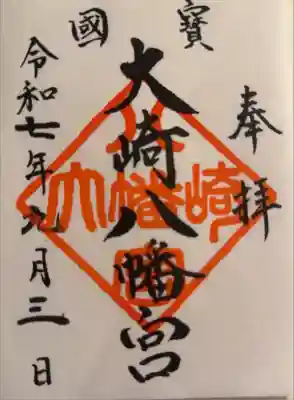 國寶
奉拝
大崎八幡宮
大崎八幡宮
令和七年九月三日